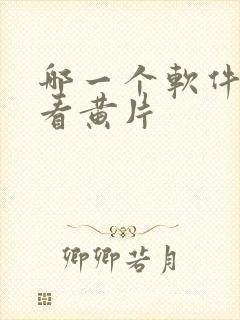 哪一个軟件
看黄片
卿卿若月